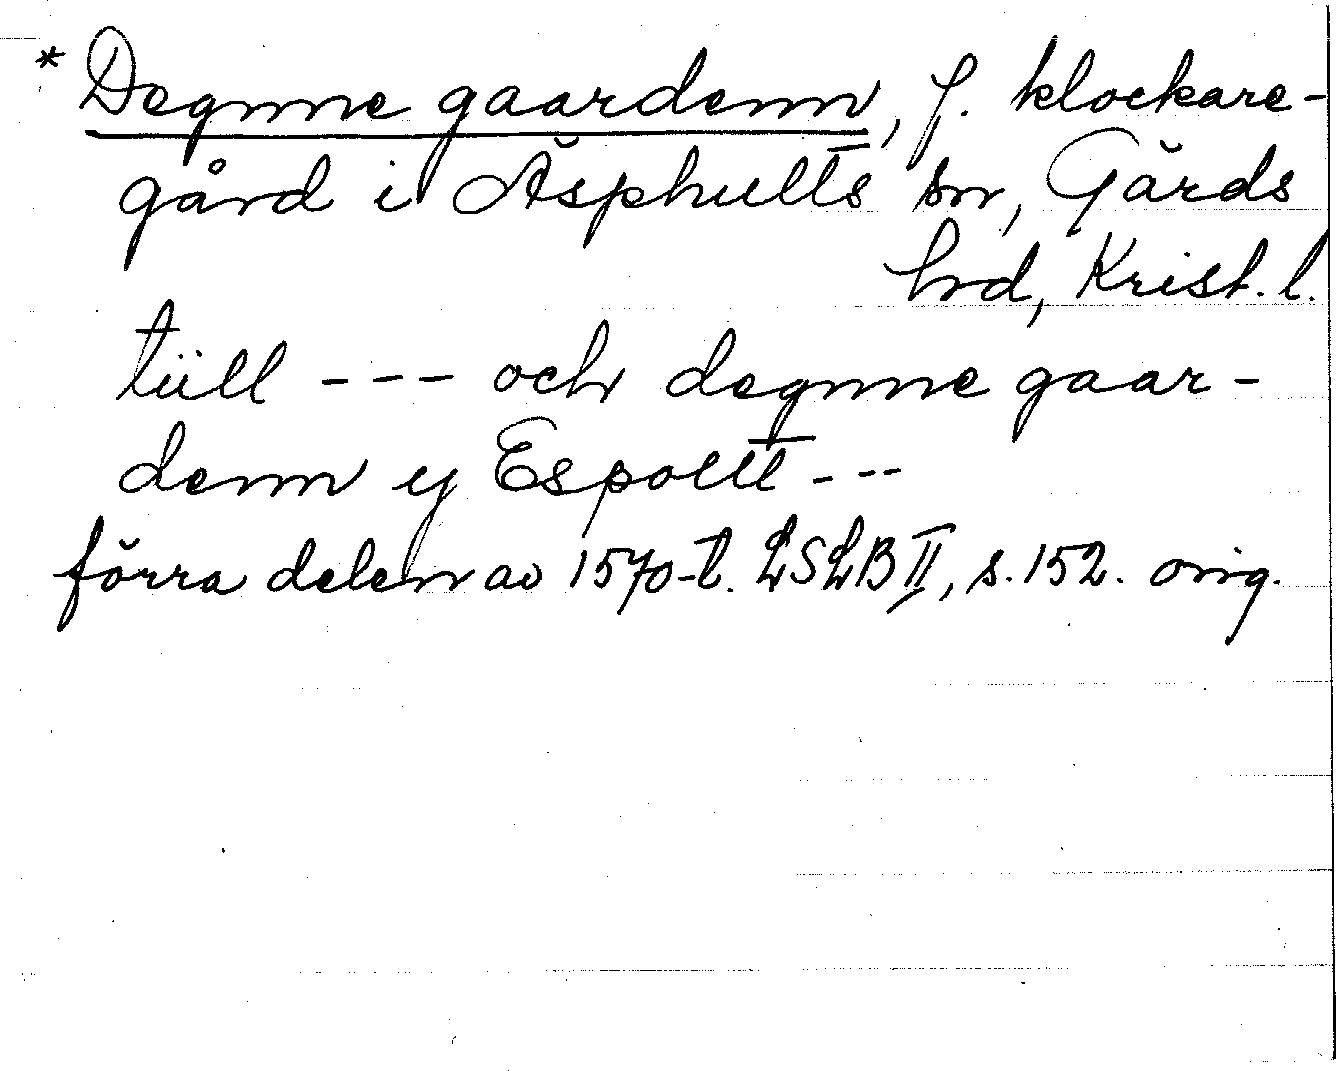 * Degnne gaardenn, f. klockare-
gård i Äsphults sn, Gärds
hrd, Krist. l.
tiill --- och degnne gaar-
denn y Espoltt ---
förra delen av 1570-t. LSLB II, s. 152. orig.